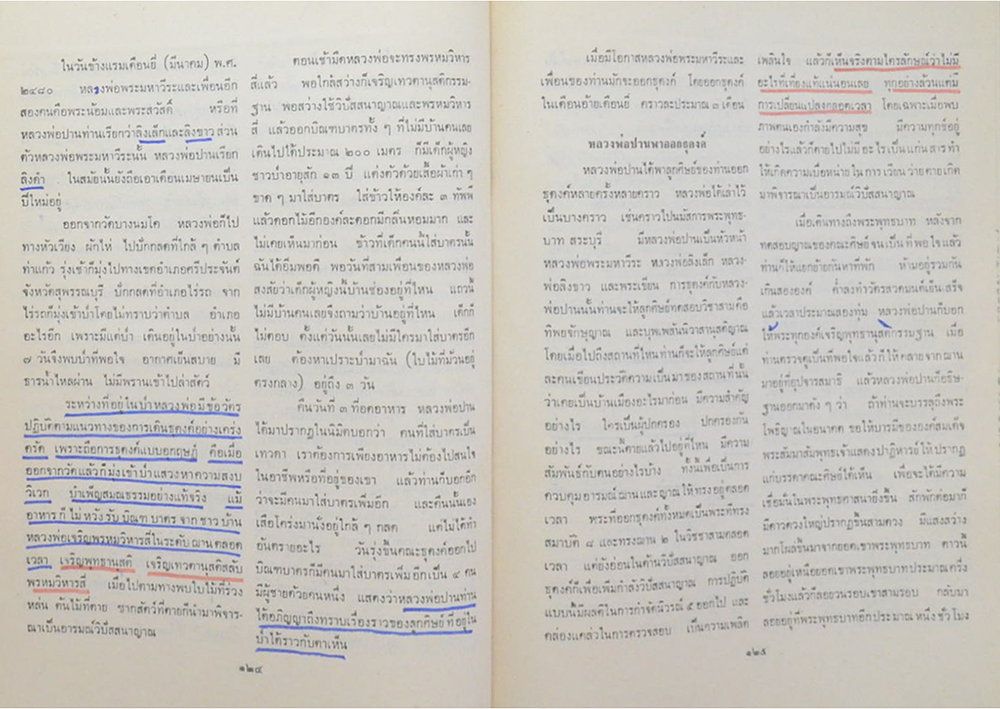 ในวันข้างแรมเดือนยี่ (มีนาคม) พ.ศ.
๒๔๘๐ หลวงพ่อพระมหาวีระและเพื่อนอีก
สองคนคือพระน้อมและพระสวัสดิ์ หรือที่
หลวงพ่อปานท่านเรียกว่าลิงเล็กและลิงขาว ส่วน
ตัวหลวงพ่อพระมหาวีระนั้น หลวงพ่อปานเรียก
ลิงดำ ในสมัยนั้นยังถือเอาเดือนเมษายนเป็น
ปีใหม่อยู่
ออกจากวัดบางนมโค หลวงพ่อก็ไป
ทางหัวเวียง ผักไห่ ไปปักกลดที่ใกล้ ๆ ตำบล
ท่าแก้ว รุ่งเช้าก็มุ่งไปทางเขตอำเภอศรีประจันต์
จังหวัดสุพรรณบุรี ปักกลดที่อำเภอไร่รถ จาก
ไร่รถก็มุ่งเข้าป่าโดยไม่ทราบว่าตำบล อำเภอ
อะไรอีก เพราะมีแต่ป่า เดินอยู่ในป่าอย่างนั้น
๗ วันจึงพบป่าที่พอใจ อากาศเย็นสบาย มี
ธารน้ำไหลผ่าน ไม่มีพรานเข้าไปล่าสัตว์
ระหว่างที่อยู่ในป่าหลวงพ่อมีข้อวัตร
ปฏิบัติตามแนวทางของการเดินธุดงค์อย่างเคร่ง
ครัด เพราะถือการธุดงค์แบบอุกฤษฎ์ คือเมื่อ
ออกจากวัดแล้วก็มุ่งเข้าป่าแสวงหาความสงบ
วิเวก บำเพ็ญสมณธรรมอย่างแท้จริง แม้
อาหาร ก็ไม่ หวัง รับ บิณฑ บาตร จาก ชาว บ้าน
หลวงพ่อเจริญพรหมวิหารสี่ในระดับ ฌาน ตลอด
เวลา เจริญพุทธานุสติ เจริญเทวตานุสติสลับ
พรหมวิหารสี่ เมื่อไปตามทางพบใบไม้ที่ร่วง
หล่น ต้นไม้ที่ตาย ซากสัตว์ที่ตายก็นำมาพิจาร-
ณาเป็นอารมณ์วิปัสสนาญาณ
ตอนเช้ามืดหลวงพ่อจะทรงพรหมวิหาร
สี่แล้ว พอใกล้สว่างก็เจริญเทวตานุสติกรรม-
ฐาน พอสว่างใช้วิปัสสนาญาณและพรหมวิหาร
สี่ แล้วออกบิณฑบาตรทั้ง ๆ ที่ไม่มีบ้านคนเลย
เดินไปได้ประมาณ ๒๐๐ เมตร ก็มีเด็กผู้หญิง
ชาวป่าอายุสัก ๑๓ ปี แต่งตัวด้วยเสื้อผ้าเก่า ๆ
ขาด ๆ มาใส่บาตร ใส่ข้าวให้องค์ละ ๓ ทัพพี
แล้วดอกไม้อีกองค์ละดอกมีกลิ่นหอมมาก และ
ไม่เคยเห็นมาก่อน ข้าวที่เด็กคนนี้ใส่บาตรนั้น
ฉันได้อิ่มพอดี พอวันที่สามเพื่อนของหลวงพ่อ
สงสัยว่าเด็กผู้หญิงนี้บ้านช่องอยู่ที่ไหน แถวนี้
ไม่มีบ้านคนเลยจึงถามว่าบ้านอยู่ที่ไหน เด็กก็
ไม่ตอบ ตั้งแต่วันนั้นเลยไม่มีใครมาใส่บาตรอีก
เลย ต้องหาเปราะป่ามาฉัน (ใบไม้ที่ม้วนอยู่
ตรงกลาง) อยู่ถึง ๓ วัน
คืนวันที่ ๓ ที่อดอาหาร หลวงพ่อปาน
ได้มาปรากฏในนิมิตบอกว่า คนที่ใส่บาตรเป็น
เทวดา เราต้องการเพียงอาหารไม่ต้องไปสนใจ
ในอาชีพหรือที่อยู่ของเขา แล้วท่านก็บอกอีก
ว่าจะมีคนมาใส่บาตรเพิ่มอีก และคืนนั้นเอง
เสือโคร่งมานั่งอยู่ใกล้ ๆ กลด แต่ไม่ได้ทำ
อันตรายอะไร วันรุ่งขึ้นคณะธุดงค์ออกไป
บิณฑบาตรก็มีคนมาใส่บาตรเพิ่ม อีก เป็น ๔ คน
มีผู้ชายด้วยคนหนึ่ง แสดงว่าหลวงพ่อปานท่าน
ได้อภิญญาถึงทราบเรื่องราวของลูกศิษย์ ที่ อยู่ ใน
ป่าได้ราวกับตาเห็น
๑๒๔
เมื่อมีโอกาสหลวงพ่อพระมหาวีระและ
เพื่อนของท่านมักจะออกธุดงค์ โดยออกธุดงค์
ในเดือนอ้ายเดือนยี่ คราวละประมาณ ๓ เดือน
หลวงพ่อปานพาออกธุดงค์
หลวงพ่อปานได้พาลูกศิษย์ของท่านออก
ธุดงค์หลายครั้งหลายคราว หลวงพ่อได้เล่าไว้
เป็นบางคราว เช่นคราวไปนมัสการพระพุทธ-
บาท สระบุรี มีหลวงพ่อปานเป็นหัวหน้า
หลวงพ่อพระมหาวีระ หลวงพ่อลิงเล็ก หลวง-
พ่อลิงขาว และพระเขียน การธุดงค์กับหลวง-
พ่อปานนั้นท่านจะให้ลูกศิษย์ทดสอบวิชาสามคือ
ทิพจักษุญาณ และบุพเพสันนิวาสานุสติญาณ
โดยเมื่อไปถึงสถานที่ไหนท่านก็จะให้ลูกศิษย์แต่
ละคนเขียนประวัติความเป็นมาของสถานที่นั้น
ว่าเคยเป็นบ้านเมืองอะไรมาก่อน มีความสำคัญ
อย่างไร ใครเป็นผู้ปกครอง ปกครองกัน
อย่างไร ขณะนี้ตายแล้วไปอยู่ที่ไหน มีความ
สัมพันธ์กับคนอย่างไรบ้าง ทั้งนี้เพื่อเป็นการ
ควบคุม อารมณ์ ฌาน และ ญาณ ให้ ทรง อยู่ ตลอด
เวลา พระที่ออกธุดงค์ทั้งหมดเป็นพระที่ทรง
สมาบัติ ๘ และทรงฌาน ๒ ในวิชชาสามตลอด
เวลา แต่ยังอ่อนในด้านวิปัสสนาญาณ ออก
ธุดงค์ก็เพื่อเพิ่มกำลังวิปัสสนาญาณ การปฏิบัติ
แบบนี้มีผลดีในการกำจัดนิวรณ์ ๕ ออกไป และ
คล่องแคล่วในการตรวจสอบ เป็นความเพลิด
เพลินใจ แล้วก็เห็นจริงตามไตรลักษณ์ว่าไม่มี
อะไรที่เที่ยงแท้แน่นอนเลย ทุกอย่างล้วนแต่มี
การเปลี่ยนแปลงตลอดเวลา โดยเฉพาะเมื่อพบ
ภาพตนเองกำลังมีความสุข มีความทุกข์อยู่
อย่างไรแล้วก็ตายไปไม่มี อะไร เป็น แก่น สาร ทำ
ให้เกิดความเบื่อหน่าย ใน การ เวียน ว่ายตายเกิด
มาพิจารณาเป็นอารมณ์วิปัสสนาญาณ
เมื่อเดินทางถึงพระพุทธบาท หลังจาก
ทดสอบญาณของคณะศิษย์ จน เป็น ที่ พอ ใจ แล้ว
ท่านก็ให้แยกย้ายกันหาที่พัก ห้ามอยู่รวมกัน
เกินสององค์ ค่ำลงทำวัตรสวดมนต์เย็นเสร็จ
แล้วเวลาประมาณสองทุ่ม หลวงพ่อปานก็บอก
ให้พระทุกองค์เจริญพุทธานุสติกรรมฐาน เมื่อ
ท่านตรวจดูเป็นที่พอใจแล้วก็ให้คลายจากฌาน
มาอยู่ที่อุปจารสมาธิ แล้วหลวงพ่อปานก็อธิษ-
ฐานออกมาดัง ๆ ว่า ถ้าท่านจะบรรลุถึงพระ
โพธิญาณในอนาคต ขอให้บารมีขององค์สมเด็จ
พระสัมมาสัมพุทธเจ้าแสดงปาฏิหารย์ ให้ ปรากฏ
แก่บรรดาคณะศิษย์ได้เห็น เพื่อจะได้มีความ
เชื่อมั่นในพระพุทธศาสนายิ่งขึ้น สักพักต่อมาก็
มีดาวดวงใหญ่ปรากฏขึ้นสามดวง มีแสงสว่าง
มากโผล่ขึ้นมาจากยอดเขาพระพุทธบาท ดาวนี้
ลอยอยู่เหนือยอดเขาพระพุทธบาทประมาณครึ่ง
ชั่วโมงแล้วก็ลอยวนรอบเขาสามรอบ กลับมา
ลอยอยู่ที่พระพุทธบาทอีก ประมาณ หนึ่ง ชั่วโมง
๑๒๕